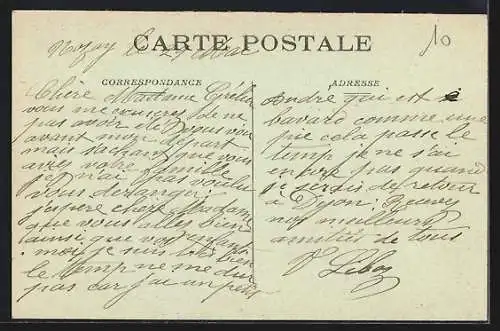 Nozay le 29 Mai
CARTE POSTALE
10
CORRESPONDANCE
Chère Madame
vous mescuserez de ne
pas avoir été vous
avant notre départ
mais sachant que vous
avez votre famille
je n'ai pas voulu
vous déranger
j'espère chère Madame
que vous allez bien
ainsi que vos
moi je suis très bien
le temp ne me dur
pas car j'ai un petit
ADRESSE
André qui est
bavard comme une
pie cela passe le
temp je ne s'ai
encore pas quand
je serais de retour
à Dijon. Recevez
nos meilleurs
amitiés de tous